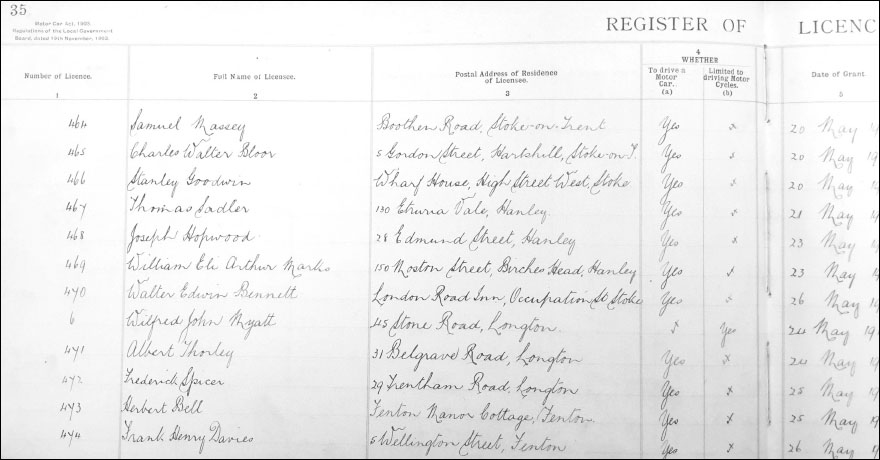 35
Motor Car Act, 1903.
Regulations of the Local Government
Board, dated 19th November, 1903.
REGISTER OF LICENC
Number of Licence. Full Name of Licensee. Postal Address of Residence of Licensee. 4 WHETHER To drive a Motor Car. (a) Limited to driving Motor Cycles. (b) Date of Grant.
1 2 3 5
464 Samuel Massey Boothen Road, Stoke-on-Trent Yes x 20 May 19
465 Charles Walter Bloor 5 Gordon Street, Hartshill, Stoke-on-T. Yes x 20 May 19
466 Stanley Goodwin Wharf House, High Street West, Stoke Yes x 20 May 19
467 Thomas Sadler 130 Etruria Vale, Hanley Yes x 21 May 19
468 Joseph Hopwood 28 Edmund Street, Hanley Yes x 23 May 19
469 William Eli Arthur Marks 150 Moston Street, Birches Head, Hanley Yes x 23 May 19
470 Walter Edwin Bennett London Road Inn, Occupation St Stoke Yes x 26 May 19
6 Wilfred John Myatt 45 Stone Road, Longton. x Yes 24 May 19
471 Albert Thorley 31 Belgrave Road, Longton Yes x 24 May 19
472 Frederick Spicer 29 Trentham Road, Longton Yes x 25 May 19
473 Herbert Bell Fenton Manor Cottage, Fenton. Yes x 25 May 19
474 Frank Henry Davies 5 Wellington Street, Fenton Yes x 26 May 19